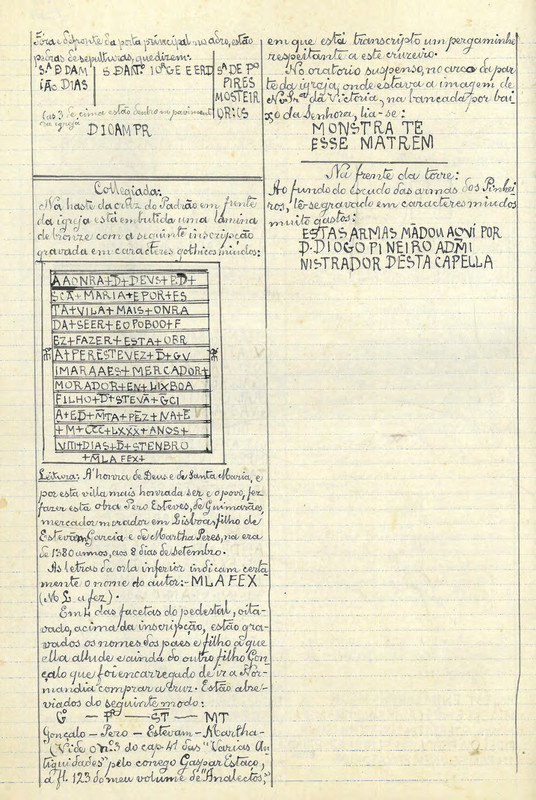 Fóra e defronte da porta principal no adro, estão
pedras de sepulturas, que dizem:
Sª D DAM
IÃO DIAS
S DANTº IOªGE E ERD
Sª DE Pº
PIRES
MOSTEIR
OR: US
(as 3 de cima estão dentro no pavimento
da igreja
DIOAMPR
Collegiada:
Na haste da cruz do Padrão em frente
da igreja está embutida uma lamina
de bronze com a seguinte inscripção
gravada em caracteres gothicos miudos:
AAONRA+D+DEVS+ED+
SCÃ+MARIA+EPOR+ES
TA+VILA+MAIS+ONRA
DA+SEER+EOPOBOO+F
EZ+FAZER+ESTA+OBR
A+PERESTEVEZ+D+GV
IMARAAES+MERCADOR+
MORADOR+EN+LIXBOA
FILHO+D+STEVÃ+GCI
A+ED+MTA+PEZ+NA+E
+M+CCCC+LXXX+ANOS+
VIII+DIAS+D+STENBRO
+MLA FEX+
Leitura: A' honra de Deus e de Santa Maria, e
por esta villa mais honrada ser e o povo, fez
fazer esta obra Pero Esteves, de Guimarães,
mercador morador em Lisboa, filho de
Estevam Garcia e de Martha Peres, na era
de 1380 annos, aos 8 dias de setembro.
As letras da orla inferior indicam certa
mente o nome do autor:- MLA FEX
(No L a fez).
Em 4 das facetas do pedestal, oita-
vado, acima da inscripção, estão gra-
vados os nomes dos paes e filho a que
ella allude e ainda do outro filho Gon
çalo que foi encarregado de ir a Nor-
mandia comprar a cruz. Estão abre-
viados do seguinte modo:
Gº — Pº — ST — MT
Gonçalo - Pero - Estevam - Martha -
(Vide o nº 3 do cap. 4º das "Varias An
tiguidades" pelo conego Gaspar Estaço,
a fl. 123 do meu volume de "Analectos,"
em que está transcripto um pergaminho
respeitante a este cruzeiro.
No oratorio suspenso, no arco da par
te da igreja, onde estava a imagem de
N. Srª da Victoria, na bancada por bai
xo da Senhora, lia-se:
MONSTRA TE
ESSE MATREM
Na frente da torre:
Ao fundo do escudo das armas dos Pinhei
ros, lê-se gravado em caracteres miudos
muito gastos:
ESTAS ARMAS MÃDOU AQVI POR
D. DIOGO PINEIRO ADMI
NISTRADOR DESTA CAPELLA